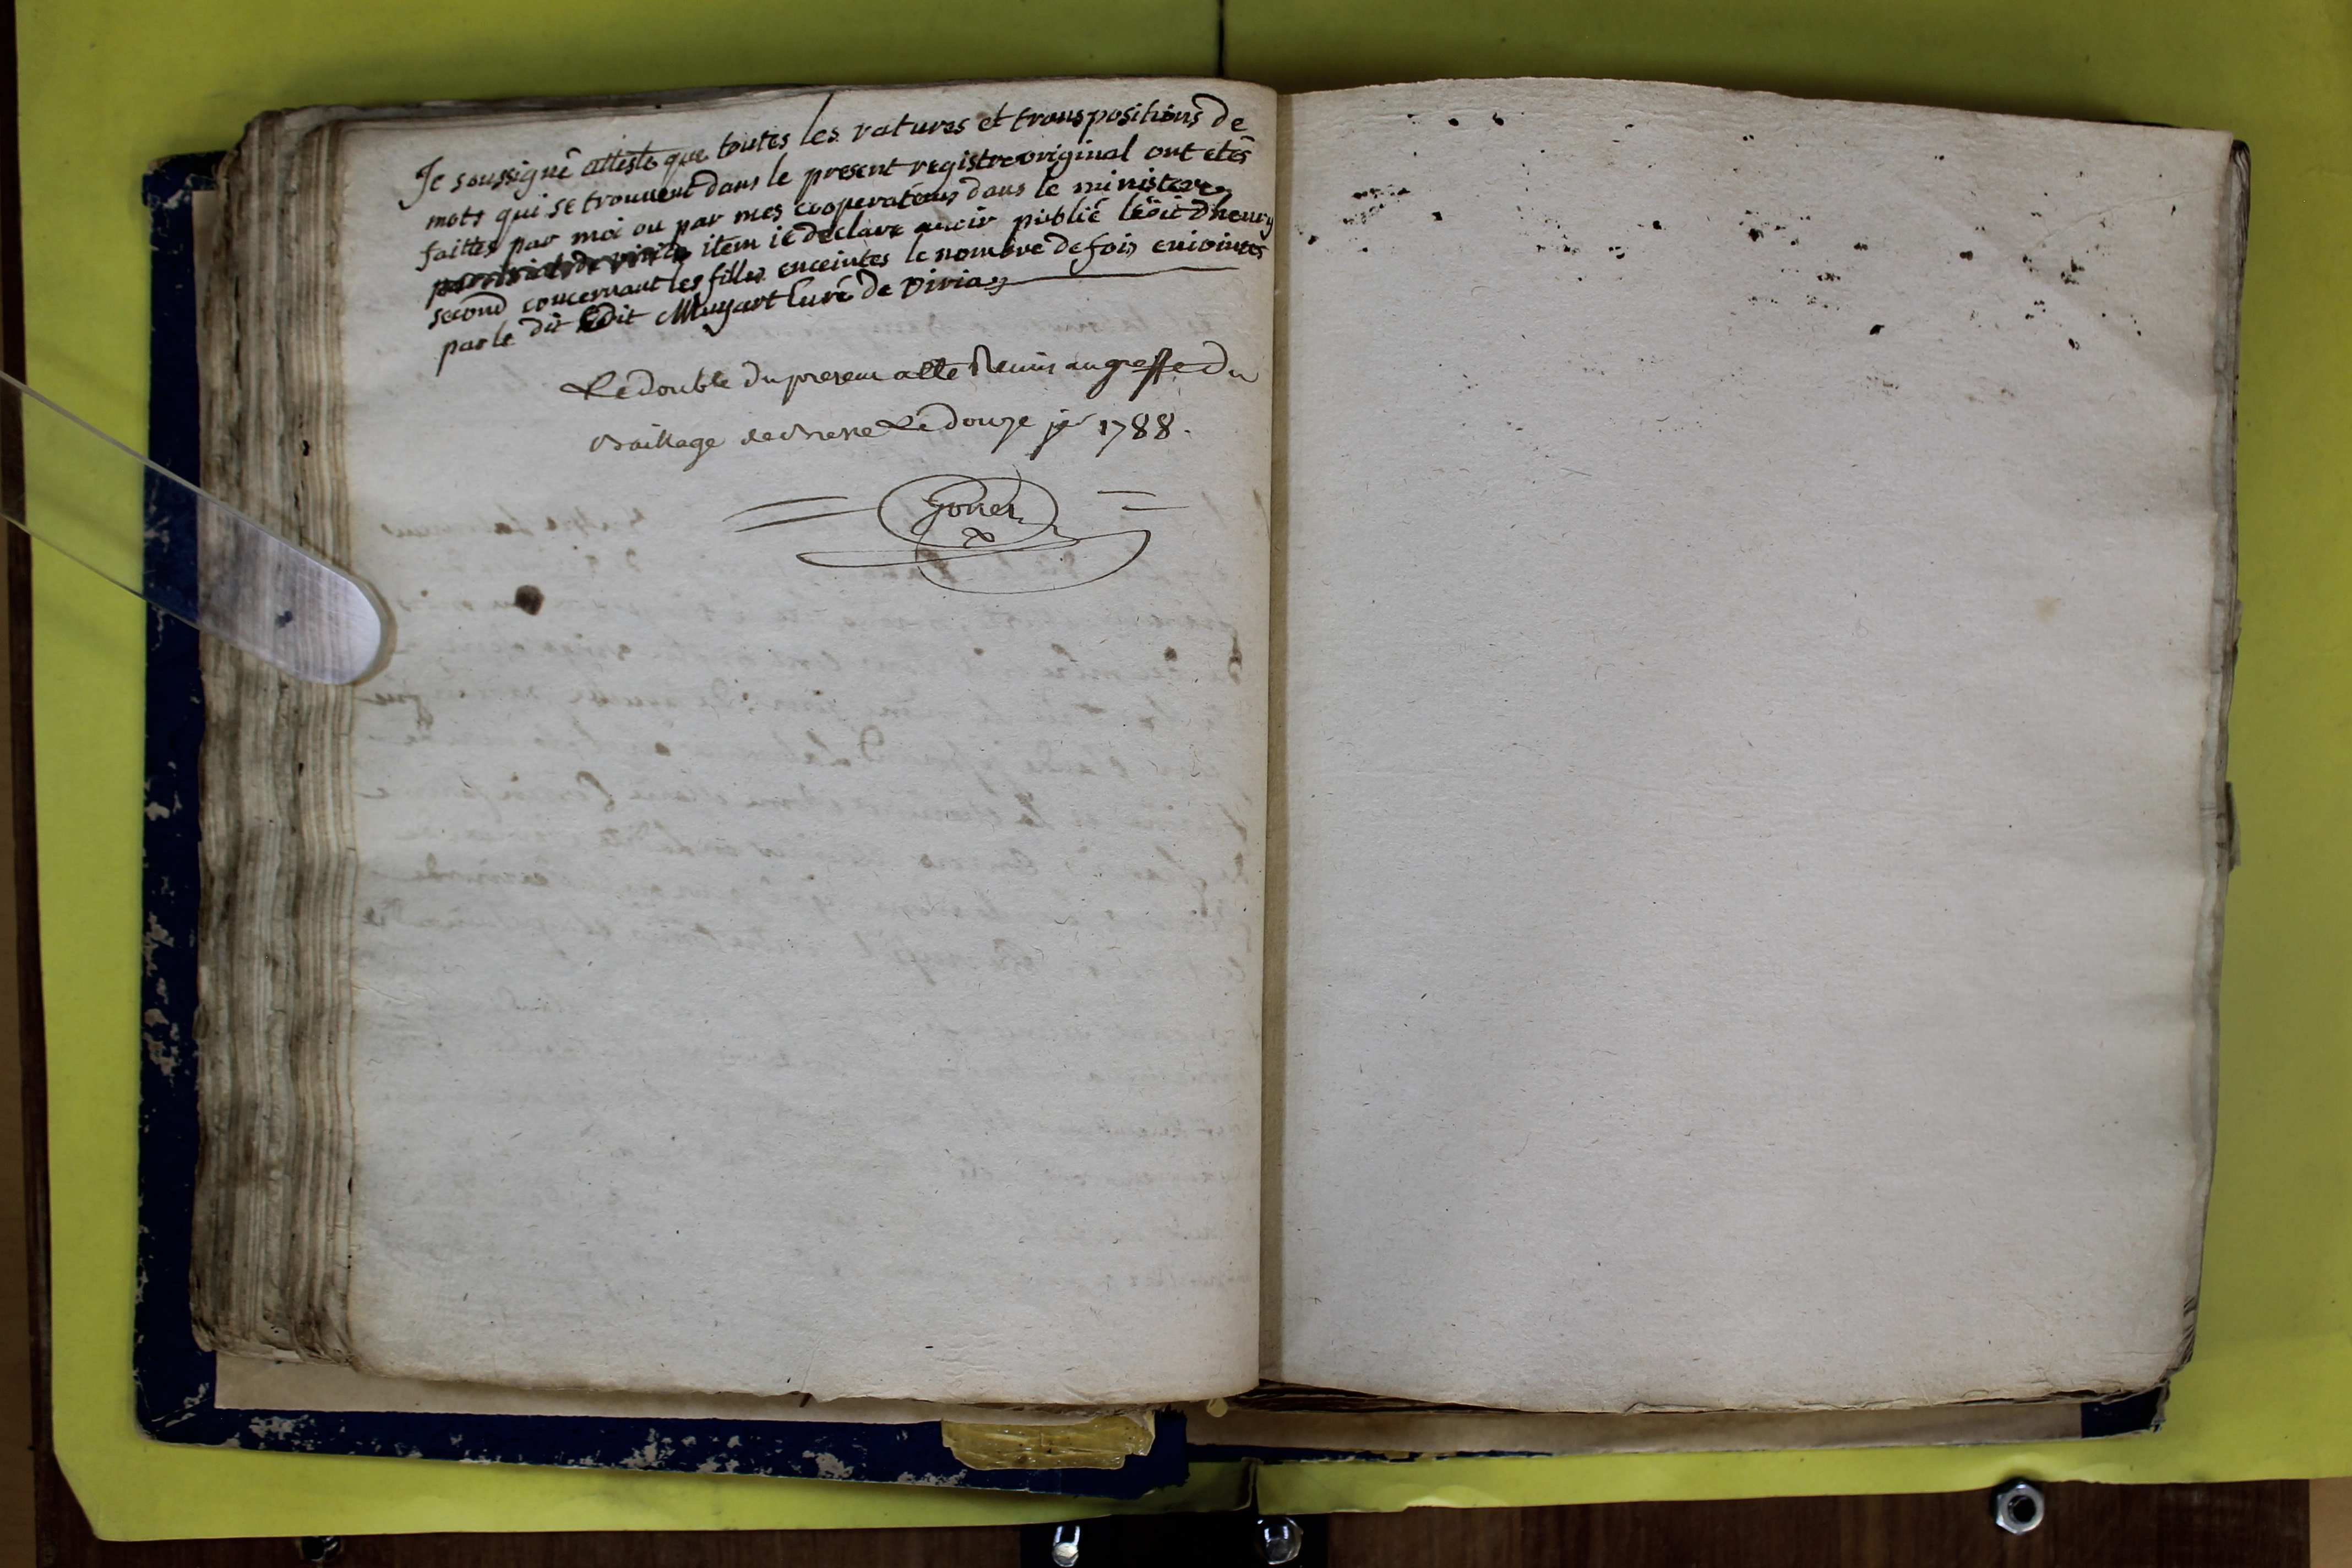 Je soussigné atteste que toutes les ratures et transpositions de
mots qui se trouvent dans le present registre original ont etés
faittes par moi ou par mes cooperateurs dans le ministere
item ie declare avoir publié l'édit d'henry
second concernant les filles enceintes le nombre de fois eniointes
par le dit Edit Muyart Curé de Viria
Le double du present acte Remis au greffe du
Bailliage de Bresse Le douze jer 1788.